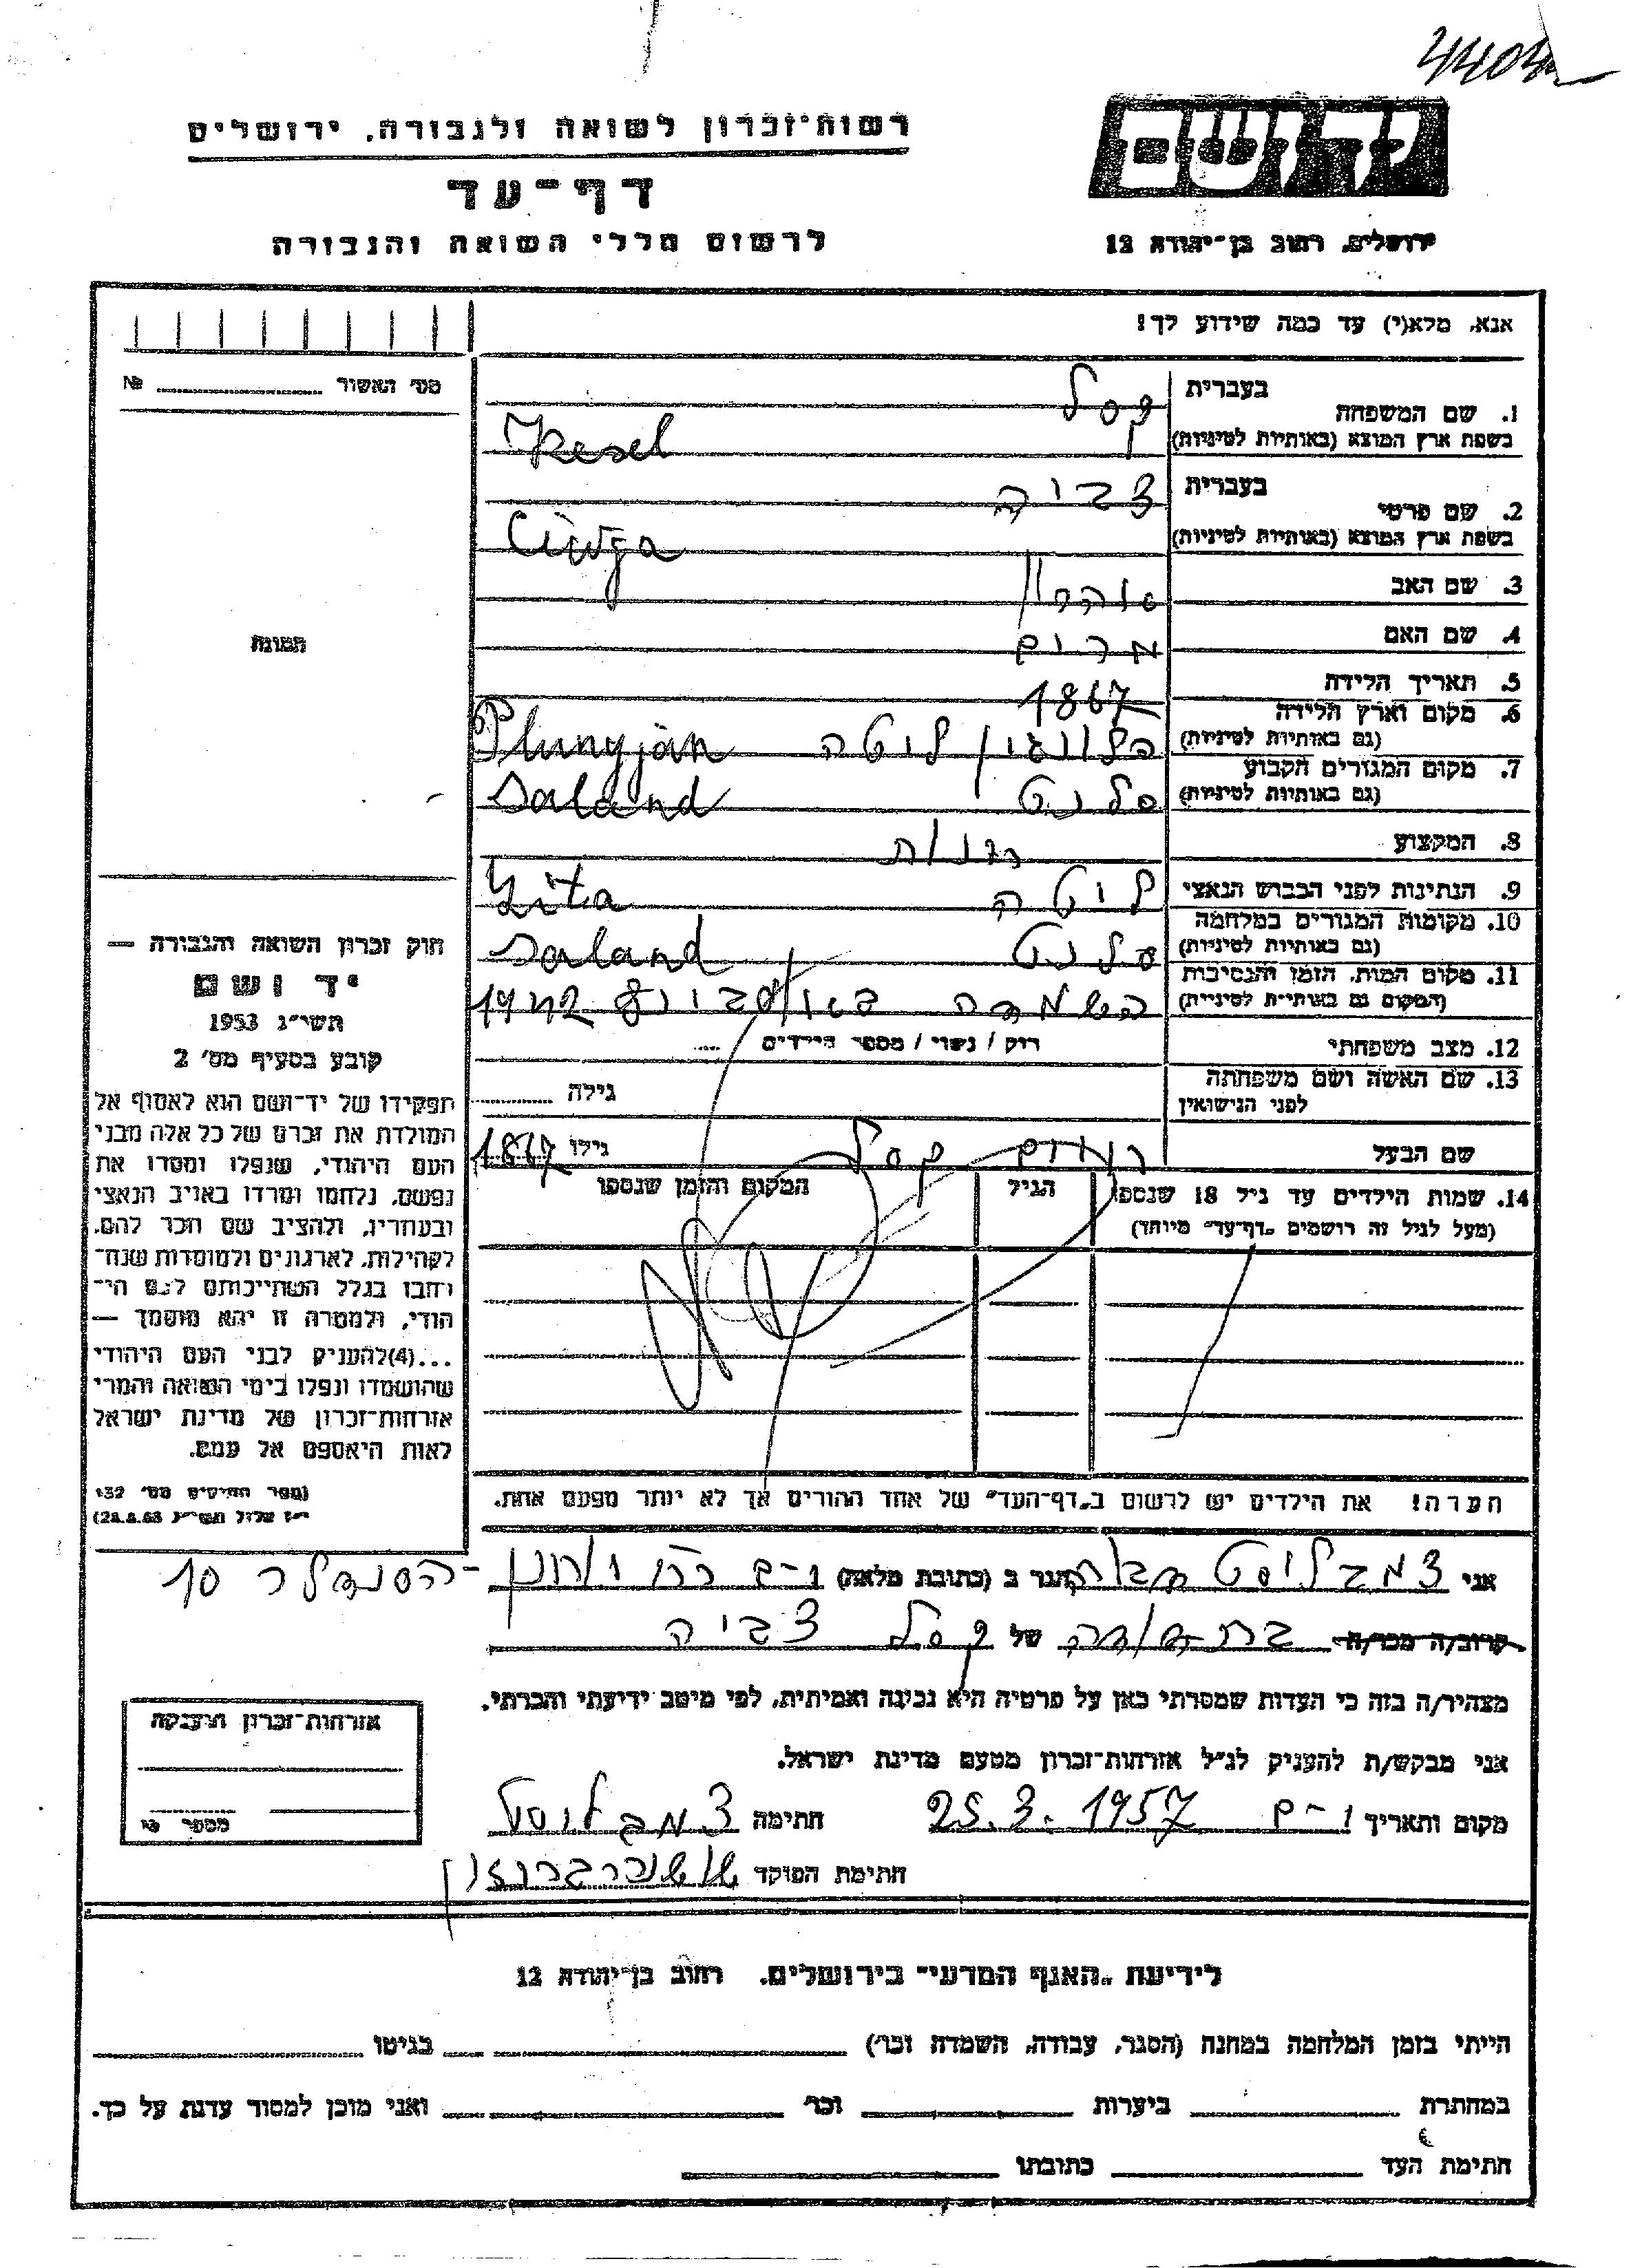 4404
רשות־זכרון לשואה ולגבורה, ירושלים
דף־עד
לרשום חללי השואה והגבורה
ירושלים, רחוב בן־יהודה 12
אנא, מלא(י) עד כמה שידוע לך!
מס' האשור №
1. שם המשפחה בעברית קסל
בשפת ארץ המוצא (באותיות לטיניות) Kesel
2. שם פרטי בעברית צביה
בשפת ארץ המוצא (באותיות לטיניות) Civja
3. שם האב
4. שם האם מרים
5. תאריך הלידה 1867
6. מקום וארץ הלידה ליטה Plungjan
(גם באותיות לטיניות)
7. מקום המגורים הקבוע סלנט Saland
(גם באותיות לטיניות)
8. המקצוע
9. הנתינות לפני הכבוש הנאצי ליטה Lita
10. מקומות המגורים במלחמה סלנט Saland
(גם באותיות לטיניות)
11. מקום המות, הזמן והנסיבות
(המקום גם באותיות לטיניות)
12. מצב משפחתי רוק / נשוי / מספר הילדים
13. שם האשה ושם משפחתה גילה
לפני הנישואין
שם הבעל קסל גילו 1867
14. שמות הילדים עד גיל 18 שנספו הגיל המקום והזמן שנספו
(מעל לגיל זה רושמים „דף־עד״ מיוחד)
הערה! את הילדים יש לרשום ב„דף־העד״ של אחד ההורים אך לא יותר מפעם אחת.
תמונה
חוק זכרון השואה והגבורה —
יד ושם
תשי״ג 1953
קובע בסעיף מס' 2
תפקידו של יד־ושם הוא לאסוף אל
המולדת את זכרם של כל אלה מבני
העם היהודי, שנפלו ומסרו את
נפשם, נלחמו ומרדו באויב הנאצי
ובעוזריו, ולהציב שם וזכר להם,
לקהילות, לארגונים ולמוסדות שנח־
רבו בגלל השתייכותם לעם הי־
הודי, ולמטרה זו יהא מוסמך —
...(4)להעניק לבני העם היהודי
שהושמדו ונפלו בימי השואה והמרי
אזרחות־זכרון של מדינת ישראל
לאות היאספם אל עמם.
(ספר החוקים מס' 132
י״ז אלול תשי״ג 28.8.53)
אני צמבליסט הגר ב (כתובת מלאה) י-ם הסנדלר 10
קרוב/ה מכר/ה של קסל צביה
מצהיר/ה בזה כי העדות שמסרתי כאן על פרטיה היא נכונה ואמיתית, לפי מיטב ידיעתי והכרתי.
אני מבקש/ת להעניק לנ״ל אזרחות־זכרון מטעם מדינת ישראל.
מקום ותאריך י-ם 25.3.1957 חתימה צמבליסט
חתימת הפוקד
אזרחות־זכרון הוענקה
מספר
לידיעת „האגף המדעי״ בירושלים, רחוב בן־יהודה 12
הייתי בזמן המלחמה במחנה (הסגר, עבודה, השמדה וכו') בגיטו
במחתרת ביערות וכו' ואני מוכן למסור עדות על כך.
חתימת העד כתובתו